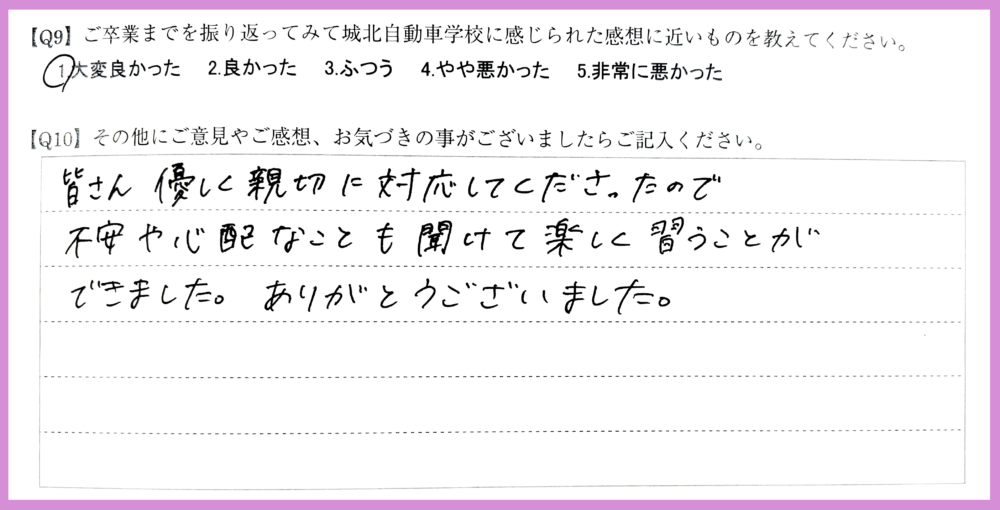 【Q9】ご卒業までを振り返ってみて城北自動車学校に感じられた感想に近いものを教えてください。
1.大変良かった 2.良かった 3.ふつう 4.やや悪かった 5.非常に悪かった
【Q10】その他にご意見やご感想、お気づきの事がございましたらご記入ください。
皆さん優しく親切に対応してくださったので
不安や心配なことも聞けて楽しく習うことが
できました。ありがとうございました。